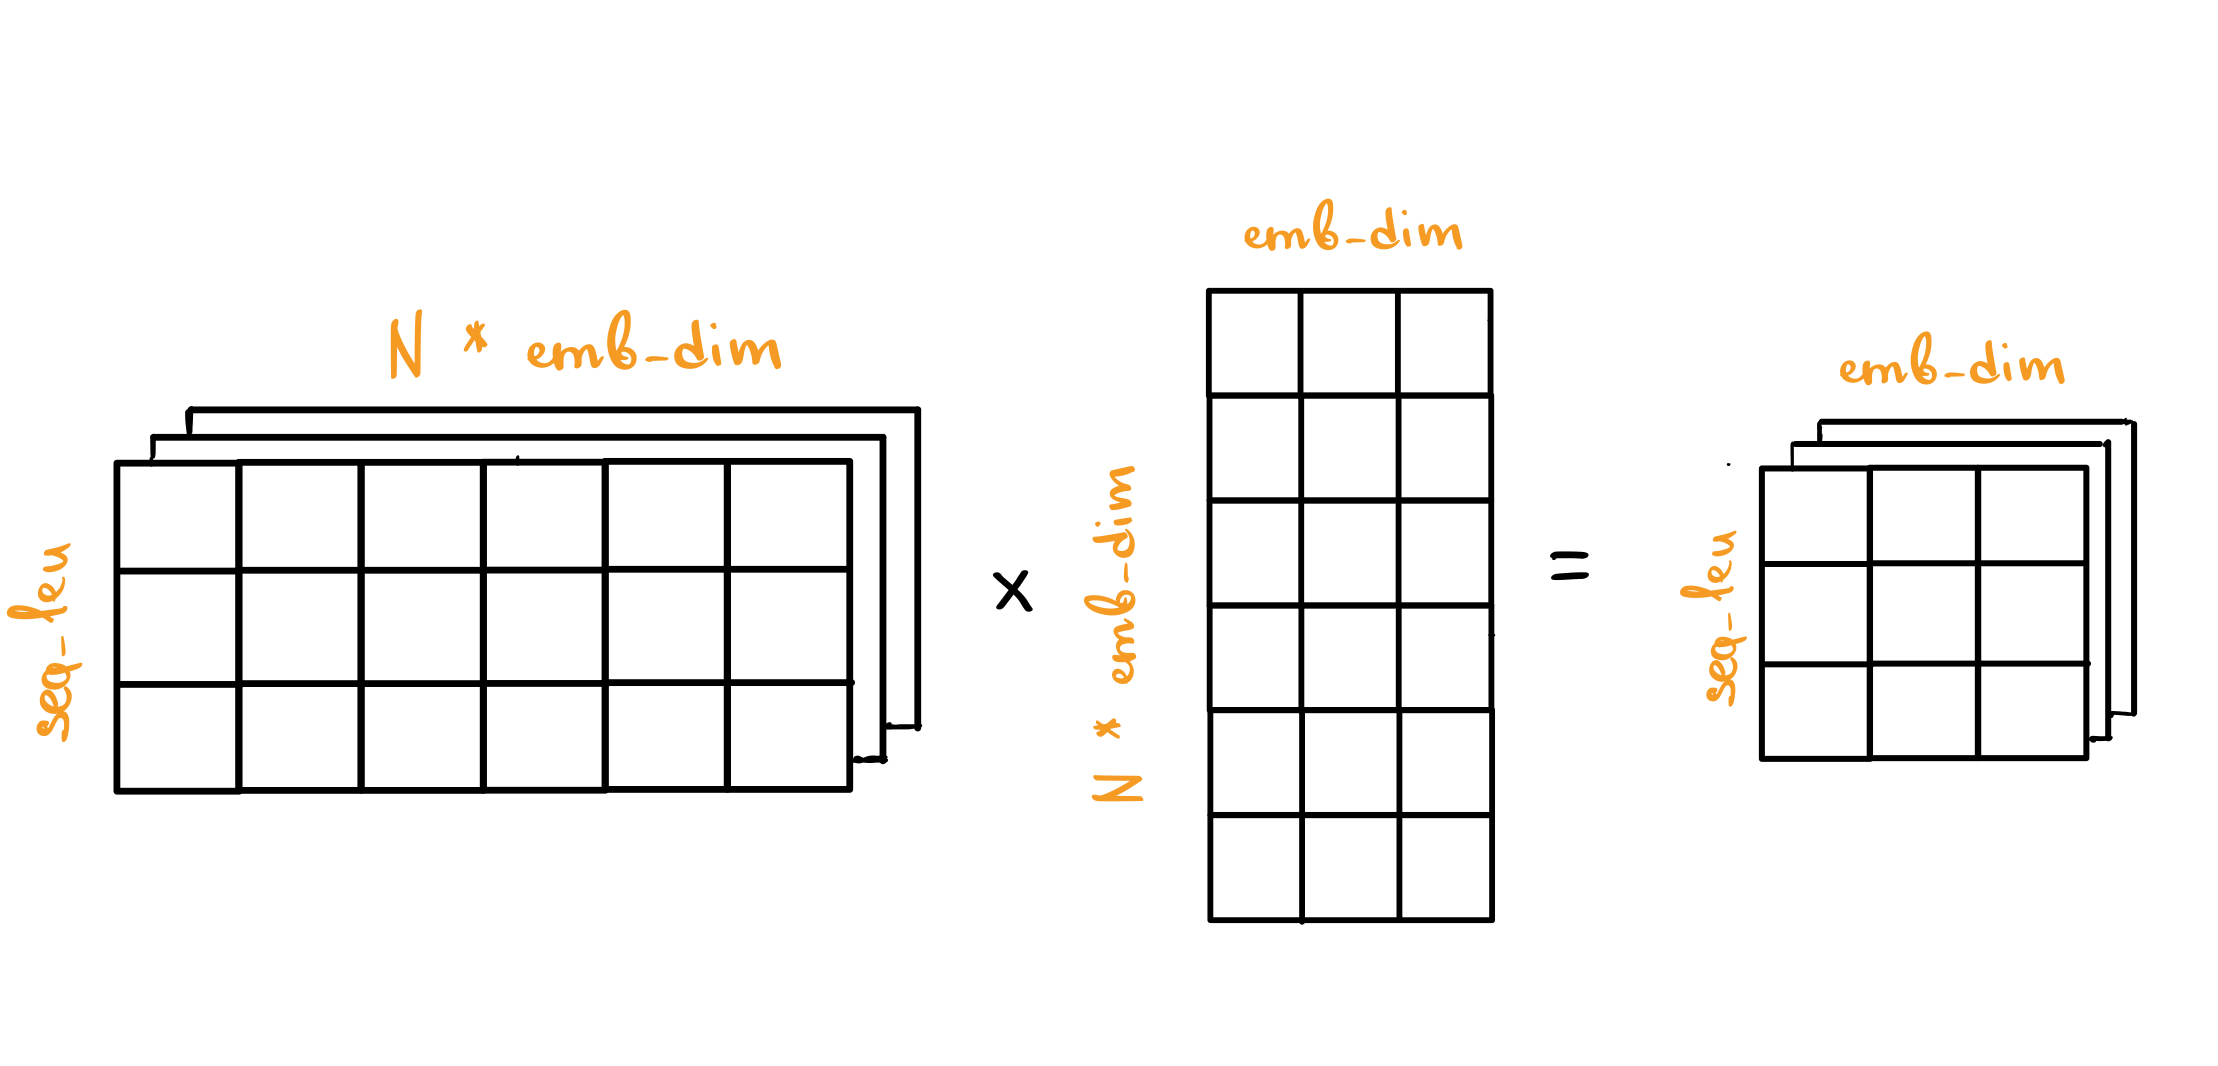 N * emb-dim
seq-len
x
emb-dim
N * emb-dim
=
emb-dim
seq-len